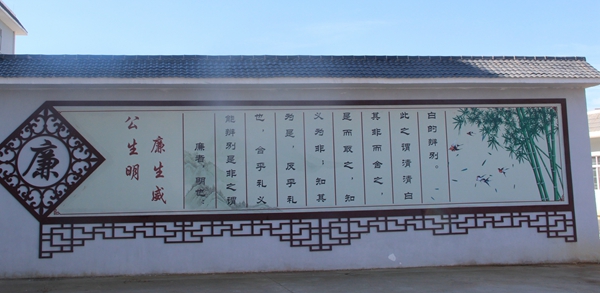 廉
公生明
廉生威
廉者，明也，
能辨别是非之谓
也，合乎礼义
为是，反乎礼
义为非；知其
是而取之，知
其非而舍之，
此之谓清清白
白的辨别。